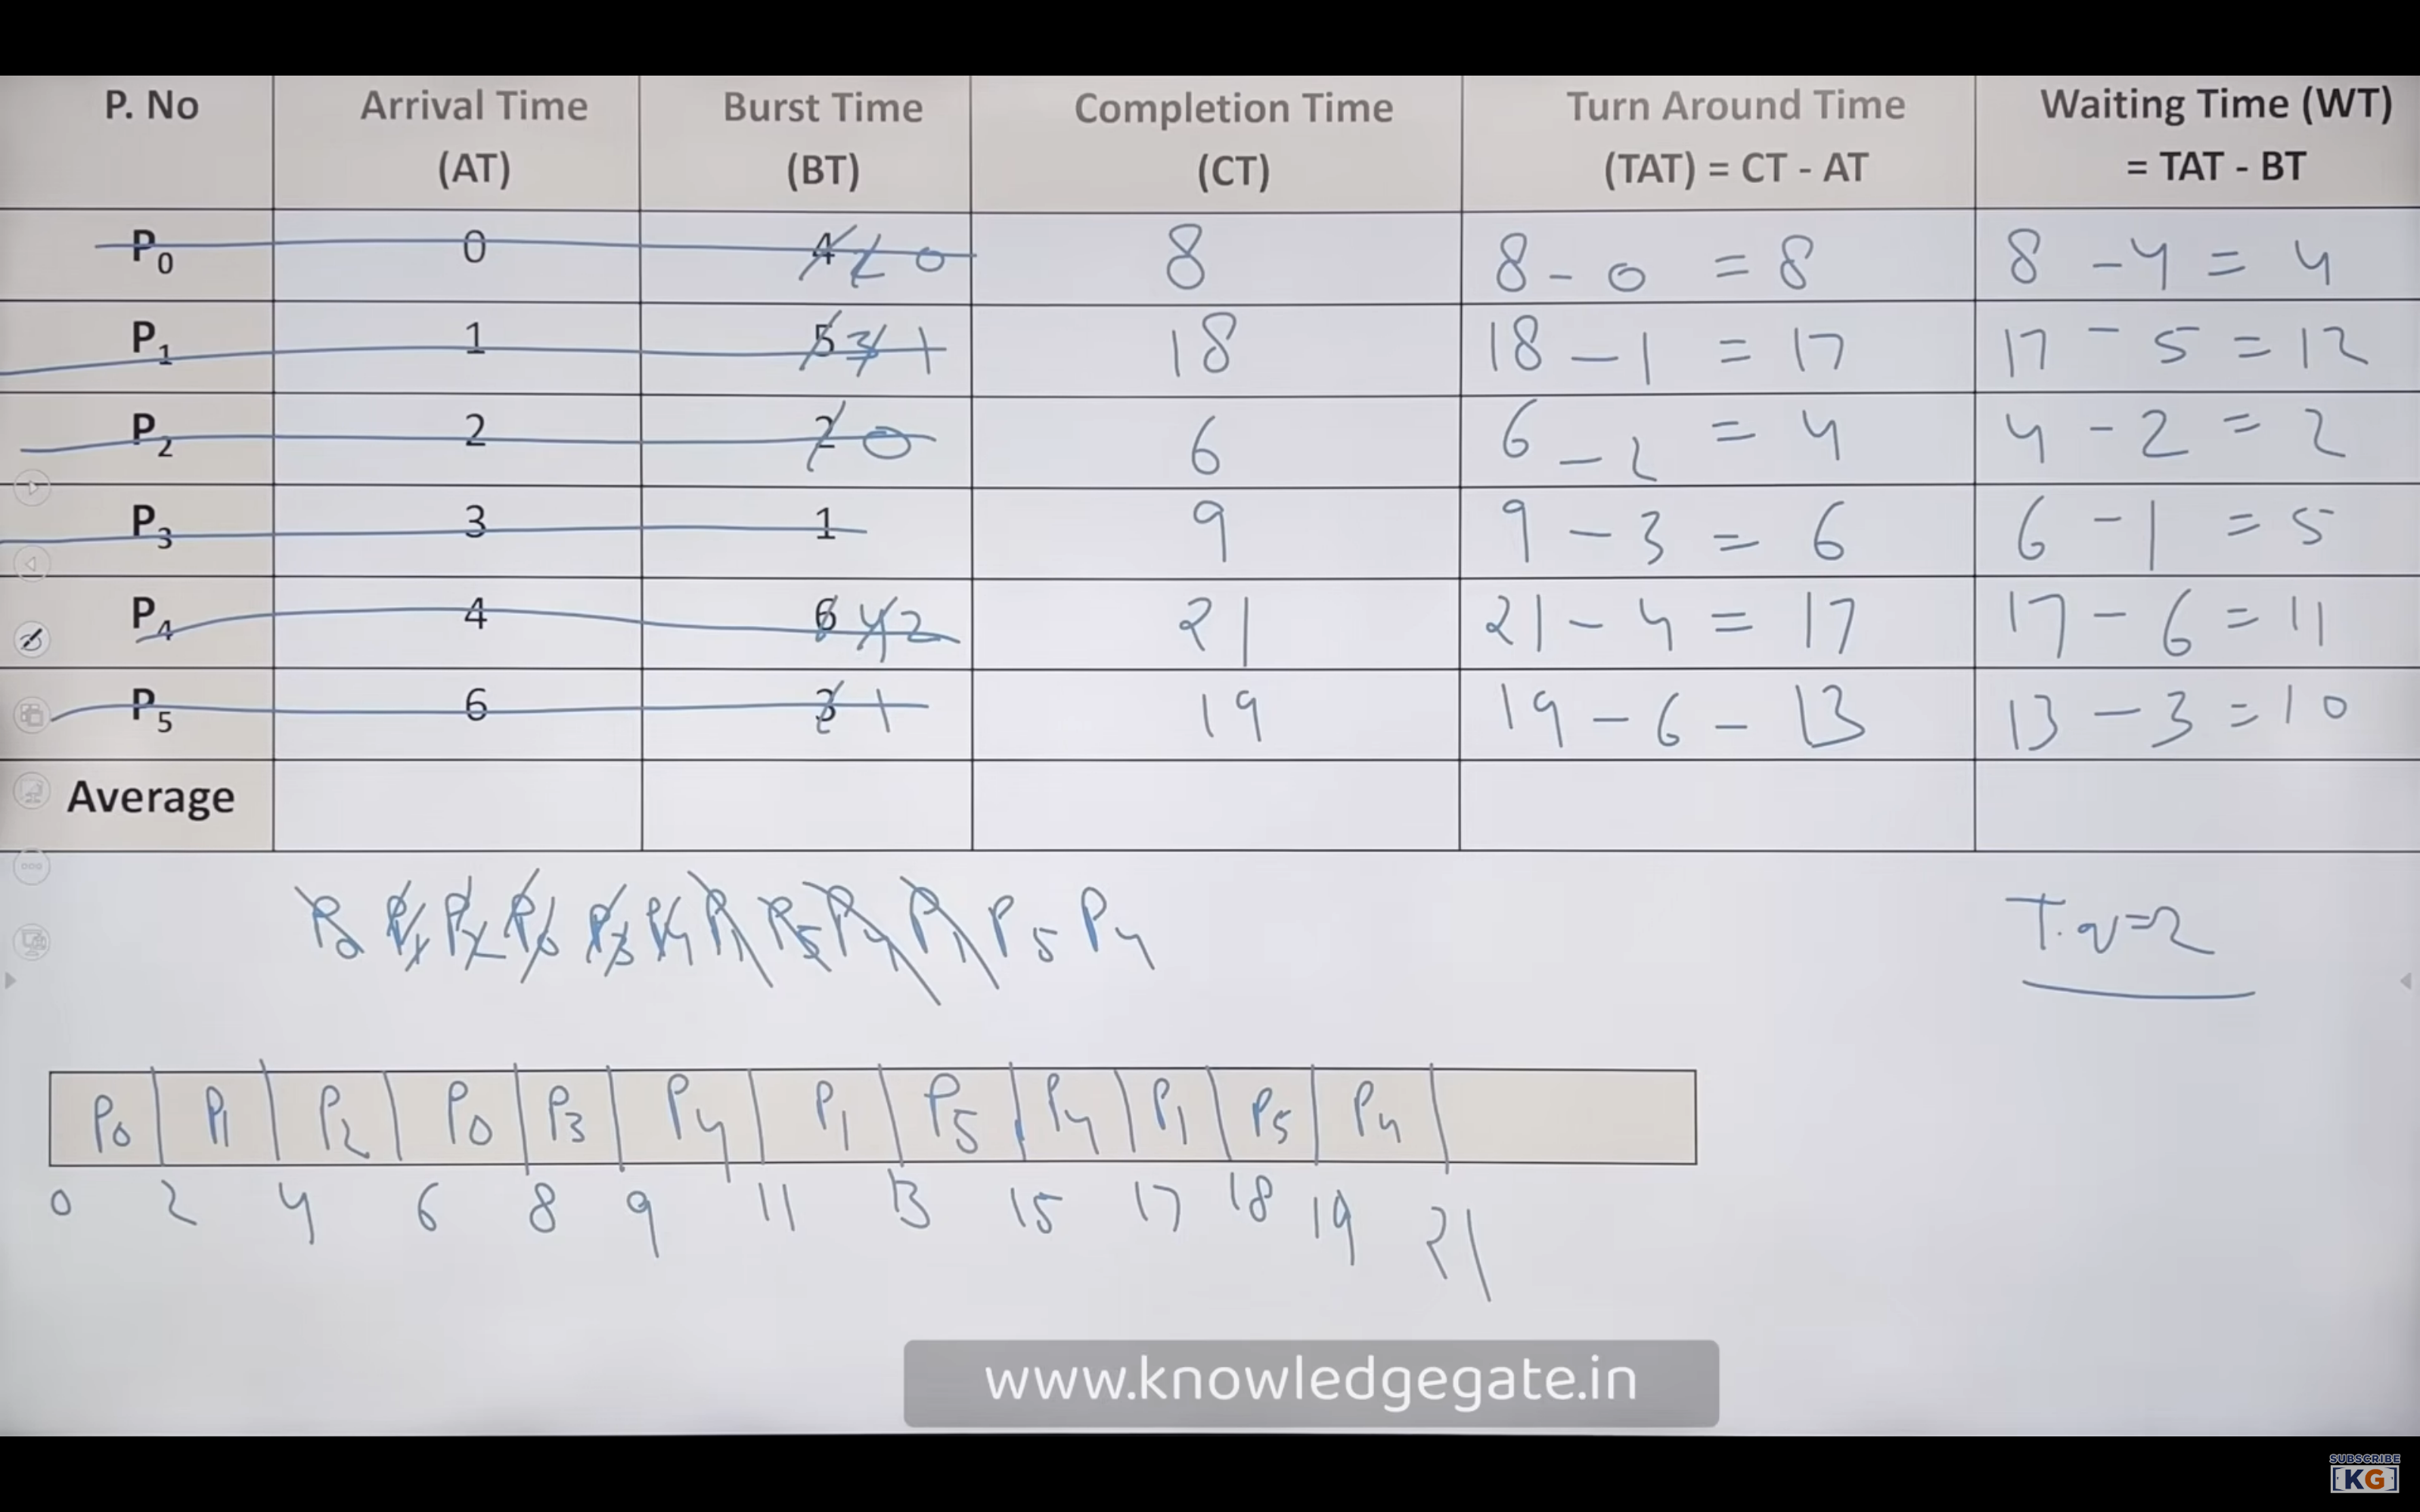 P. No Arrival Time (AT) Burst Time (BT) Completion Time (CT) Turn Around Time (TAT) = CT - AT Waiting Time (WT) = TAT - BT
P0 0 4 2 0 8 8 - 0 = 8 8 - 4 = 4
P1 1 5 3 1 18 18 - 1 = 17 17 - 5 = 12
P2 2 2 0 6 6 - 2 = 4 4 - 2 = 2
P3 3 1 9 9 - 3 = 6 6 - 1 = 5
P4 4 6 4 2 21 21 - 4 = 17 17 - 6 = 11
P5 6 3 1 19 19 - 6 - 13 13 - 3 = 10
Average
P0 P1 P2 P0 P3 P4 P1 P5 P4 P1 P5 P4 T.q=2
P0 P1 P2 P0 P3 P4 P1 P5 P4 P1 P5 P4
0 2 4 6 8 9 11 13 15 17 18 19 21
www.knowledgegate.in
SUBSCRIBE
[KG]